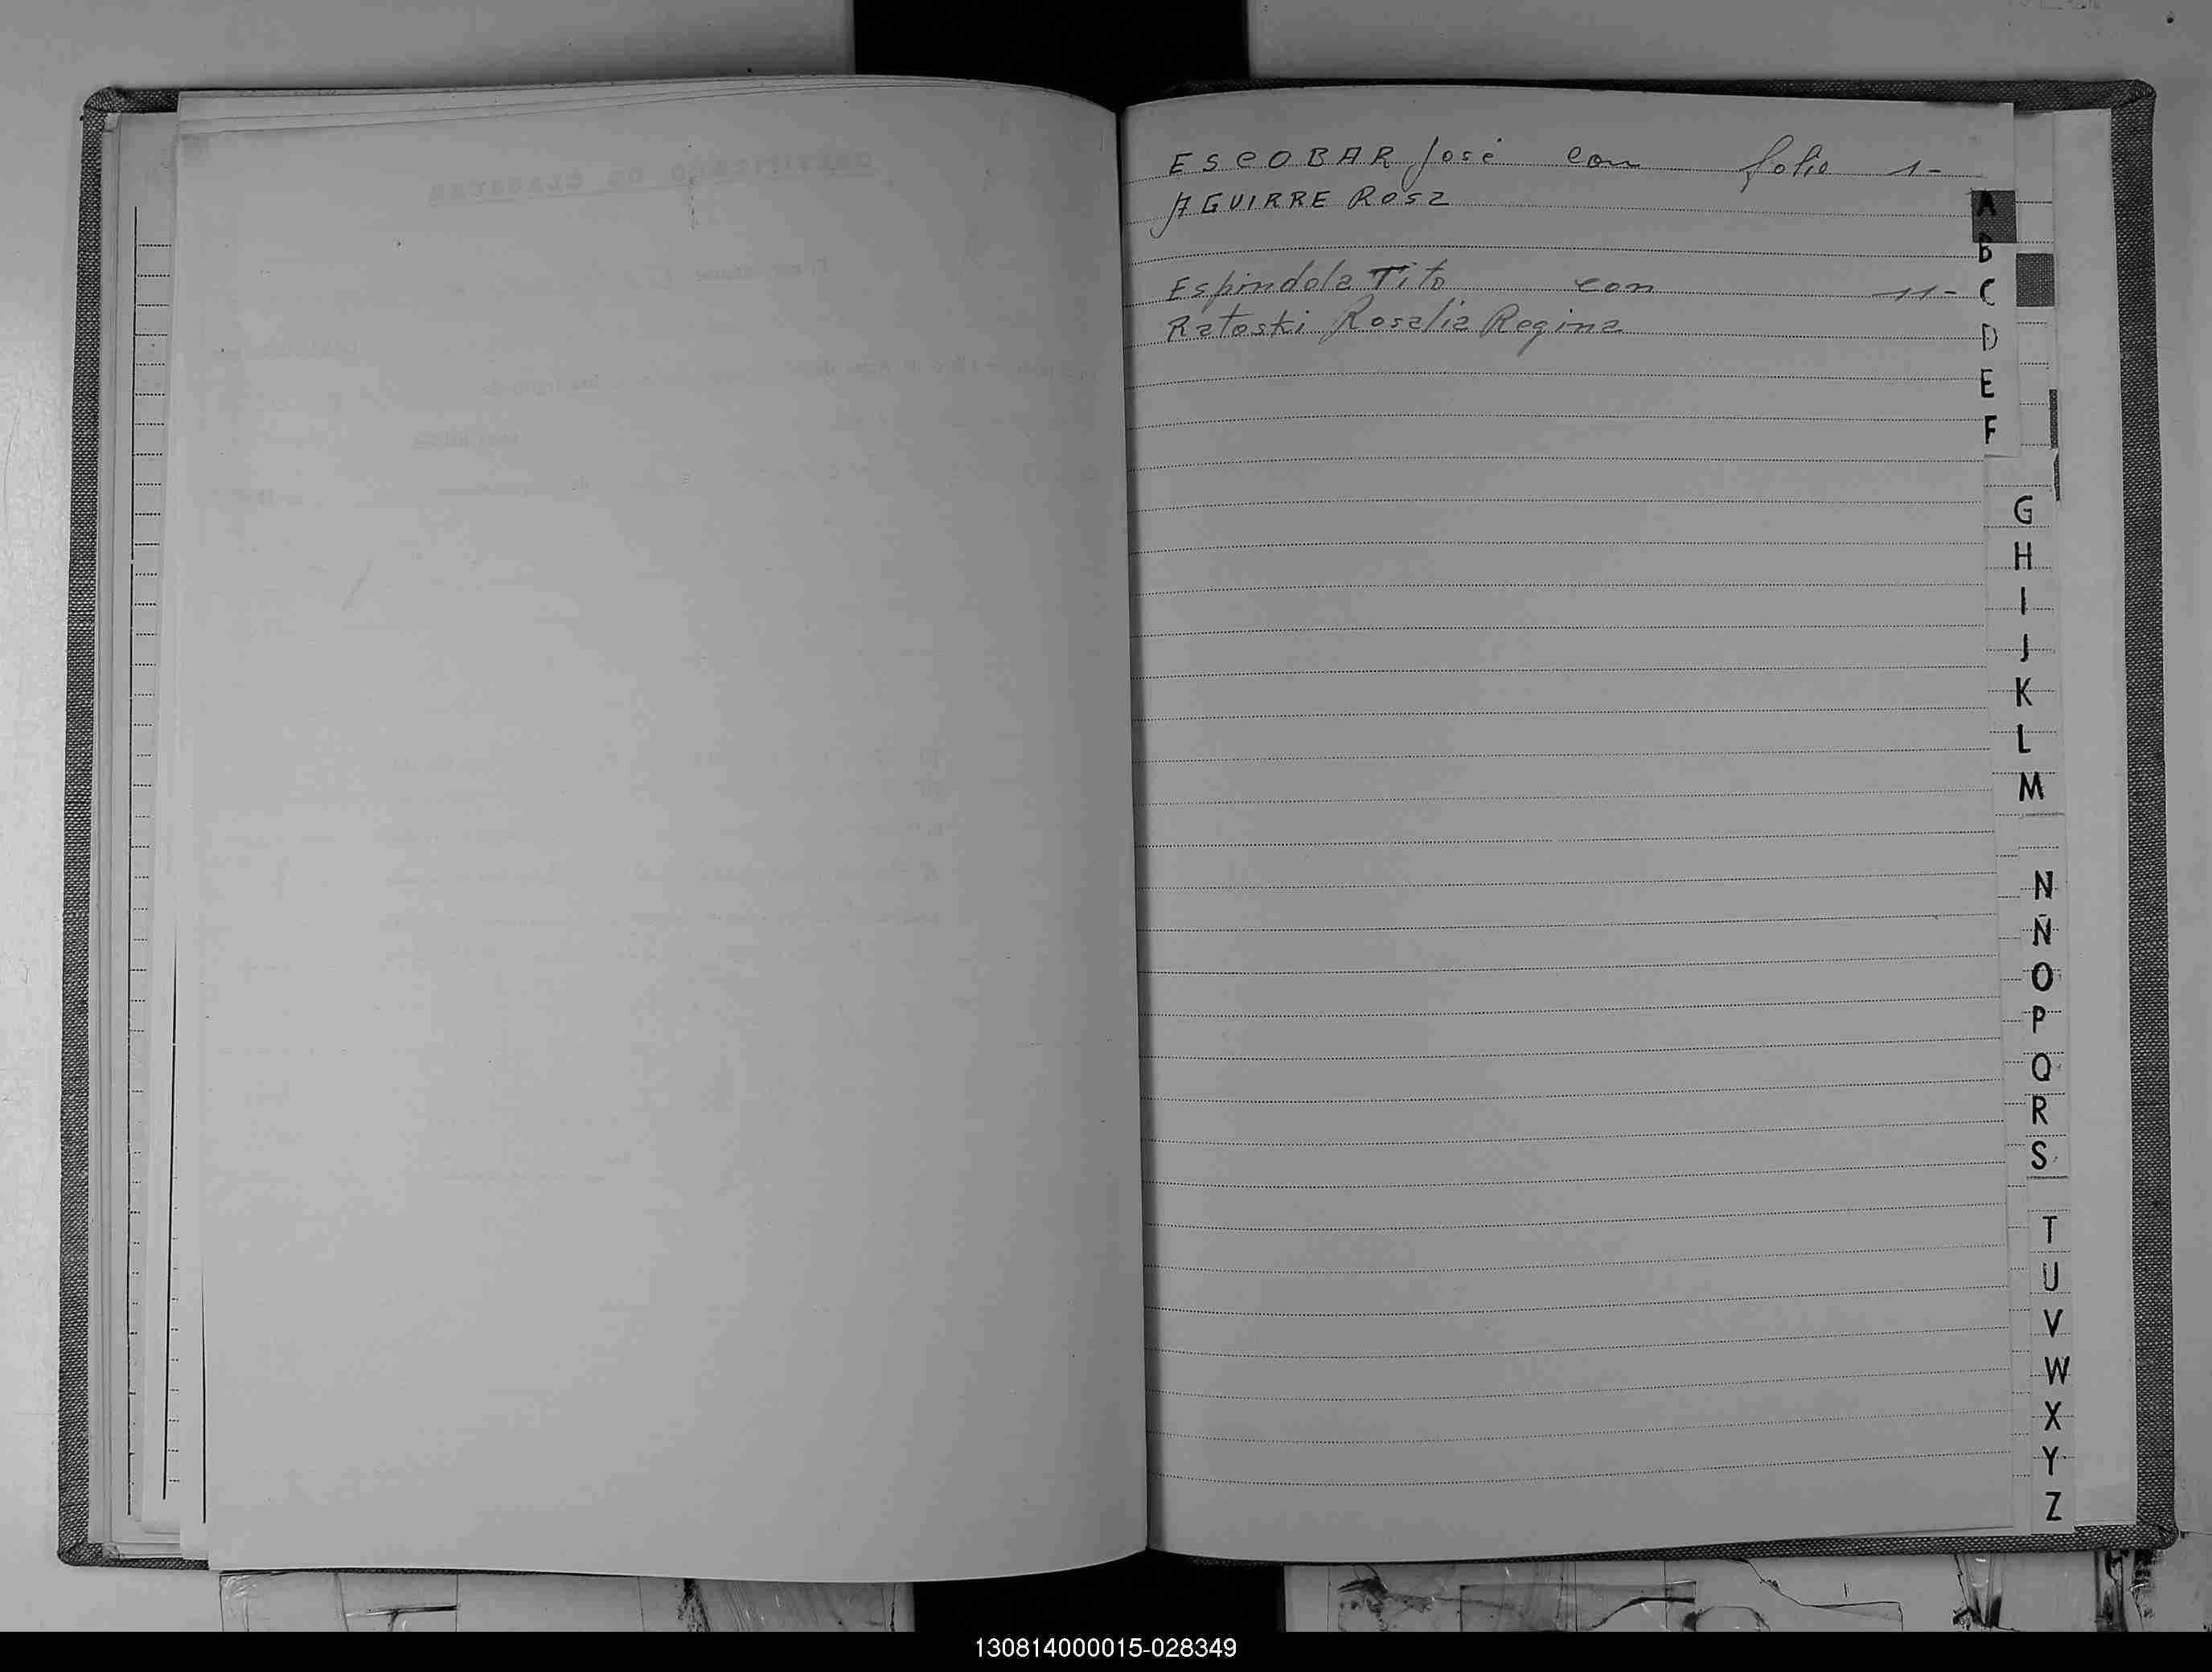 ESCOBAR José con folio 1-
AGUIRRE Rosa
Espindola Tito con 11-
Ratoski Rosalia Regina
A
B
C
D
E
F
G
H
I
J
K
L
M
N
Ñ
O
P
Q
R
S
T
U
V
W
X
Y
Z
130814000015-028349